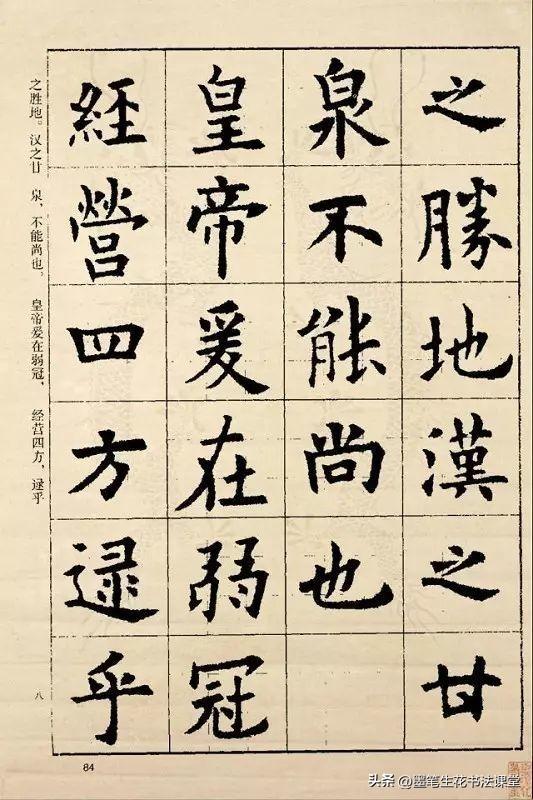 之勝地漢之甘
泉不能尚也
皇帝爰在弱冠
經營四方逮乎
之胜地。汉之甘 泉，不能尚也。 皇帝爰在弱冠， 经营四方，逮乎
八
84
头条 @墨笔生花书法课堂